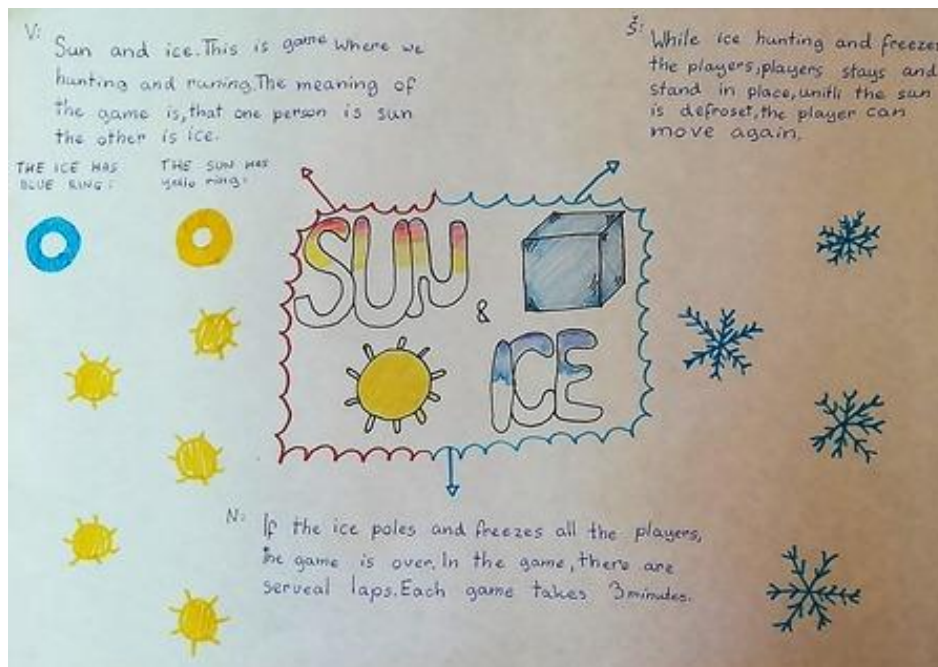 V:
Sun and ice.This is game where we
hunting and runing.The meaning of
the game is,that one person is sun
the other is ice.
THE ICE HAS
BLUE RING:
THE SUN HAS
yello ring:
Š:
While ice hunting and freezes
the players,players stays and
stand in place,unitli the sun
is defroset,the player can
move again.
SUN
&
ICE
N:
If the ice poles and freezes all the players,
the game is over.In the game,there are
serveal laps.Each game takes 3minutes.